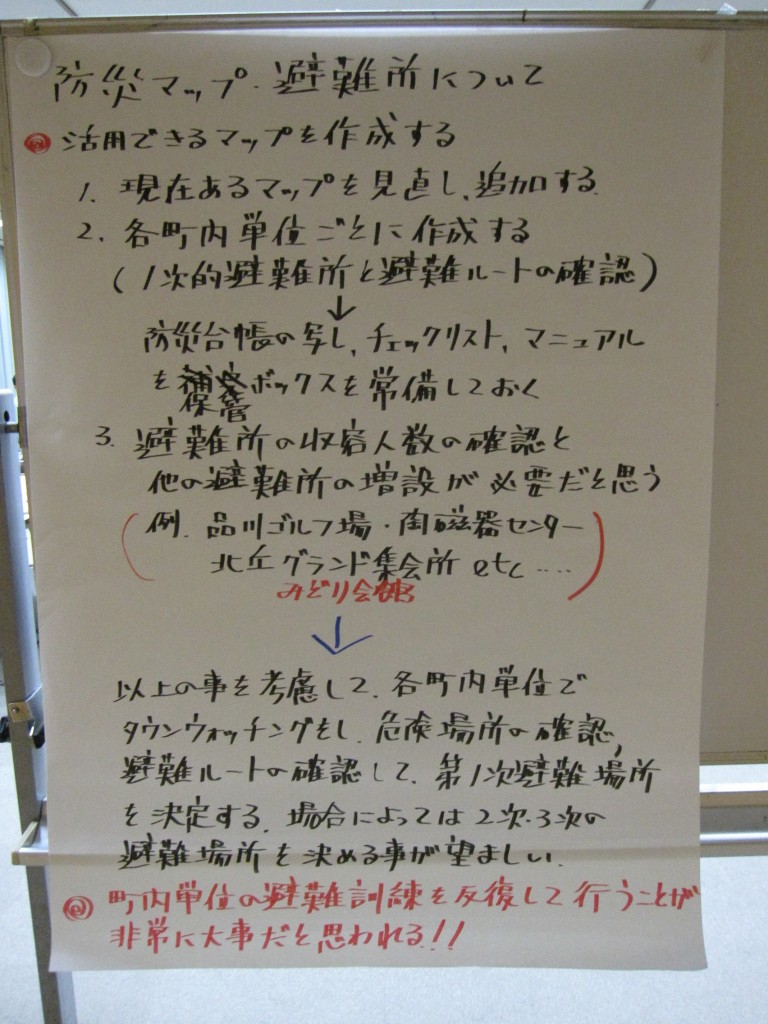 防災マップ・避難所について
◎ 活用できるマップを作成する
1. 現在あるマップを見直し、追加する。
2. 各町内単位ごとに作成する
(1次的避難所と避難ルートの確認)
↓
防災台帳の写し、チェックリスト、マニュアル
を保管ボックスを常備しておく
3. 避難所の収容人数の確認と
他の避難所の増設が必要だと思う
(例. 品川ゴルフ場・陶磁器センター
北丘グランド集会所 etc ‥‥)
みどり会館
↓
以上の事を考慮して、各町内単位で
タウンウォッチングをし、危険場所の確認、
避難ルートの確認して、第1次避難場所
を決定する。場合によっては2次・3次の
避難場所を決める事が望ましい。
◎ 町内単位の避難訓練を反復して行うことが
非常に大事だと思われる!!